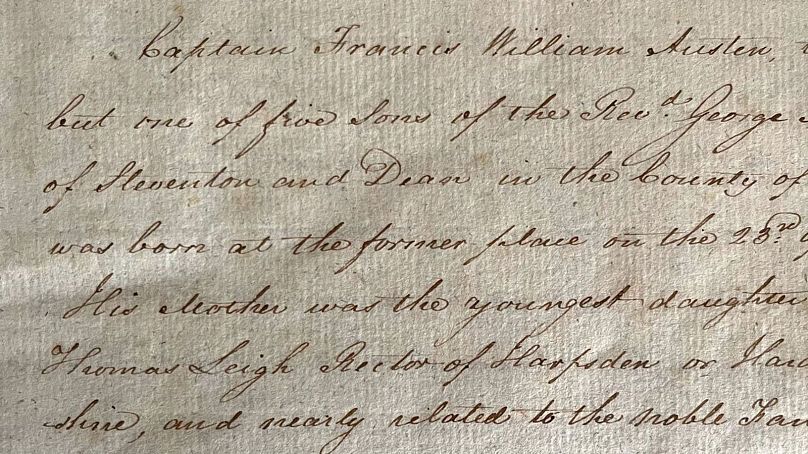 Captain Francis William Austen,
but one of five Sons of the Rev.d George
of Steventon and Dean in the County of
was born at the former place on the 23.rd
His Mother was the youngest daughter
Thomas Leigh Rector of Harpsden or
shire, and nearly related to the noble